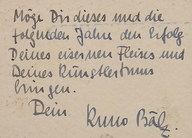 Möge Dir dieses und die
folgenden Jahre den Erfolg
Deines eisernen Fleises und
Deines Kunstkönnens
bringen.
Dein Kuno Bälz